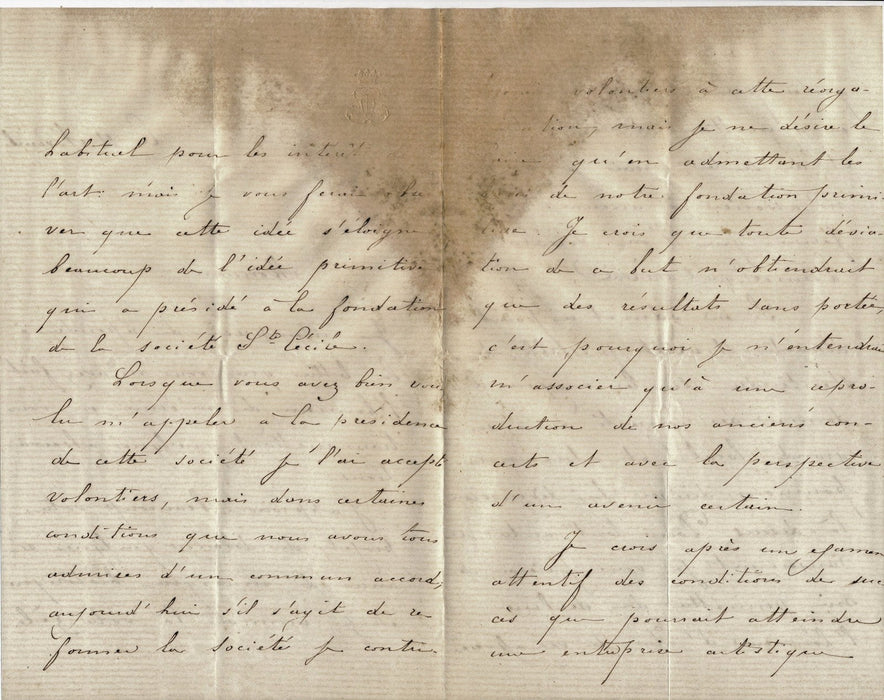 habituel pour les intérêt
l'art. mais je vous ferai obser
ver que cette idée s'éloigne
beaucoup de l'idée primitive
qui a présidé à la fondation
de la société Ste Cécile.
Lorsque vous avez bien vou
lu m'appeler à la présidence
de cette société je l'ai accepté
volontiers, mais dans certaines
conditions que nous avons tous
admises d'un commun accord,
aujourd'hui s'il s'agit de re
former la société je contri
volontiers à cette réorga-
mais je ne désire le
qu'en admettant les
de notre fondation primi
tive. Je crois que toute dévia-
tion de ce but n'obtiendrait
que des résultats sans portée,
c'est pourquoi je n'entendrai
m'associer qu'à une repro-
duction de nos anciens con-
certs et avec la perspective
d'un avenir certain.
Je crois après un examen
attentif des conditions de suc
cès que pourrait atteindre
une entreprise artistique